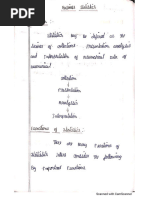 Business Statistics
Statistics may be defined as the
Science of collections Presentation analysis
and Interpretation of numerical
collection
Presentation
Analysis
Interpretation
Functions of Statistics:
They are many functions of
Statistics
Important Functions.
Scanned with CamScanner